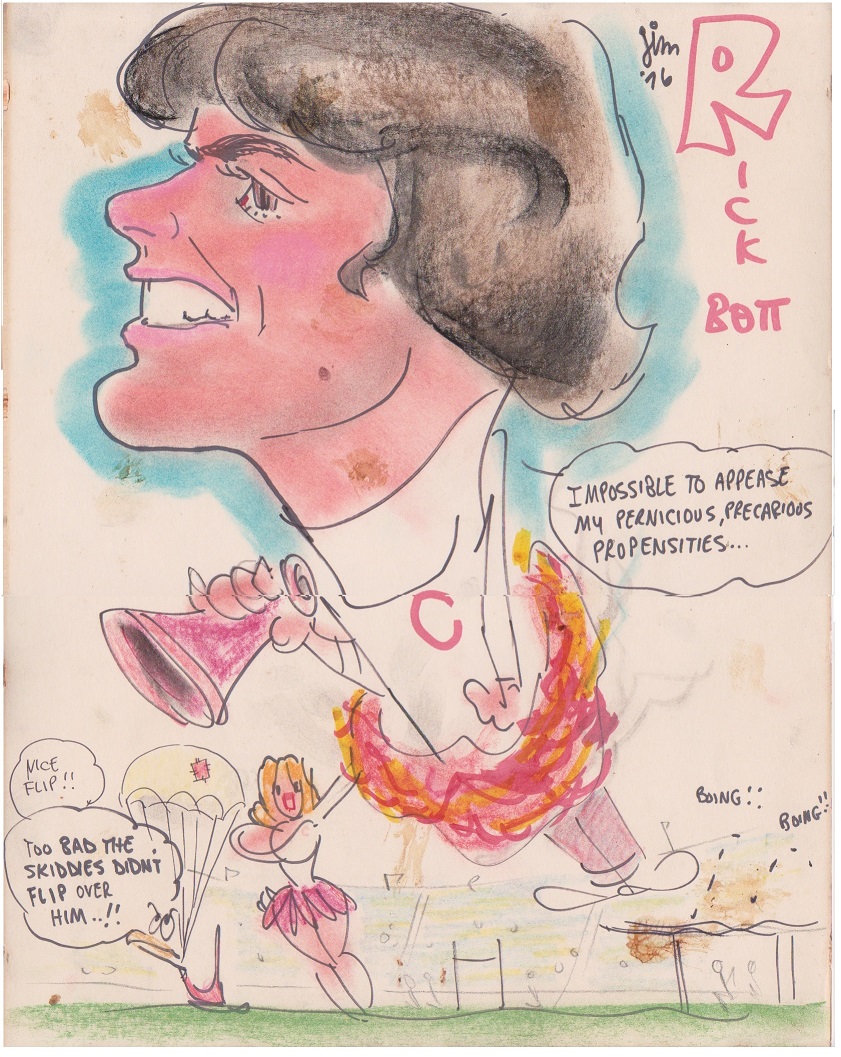 Jim
'76
RICK
BOTT
IMPOSSIBLE TO APPEASE
MY PERNICIOUS, PRECARIOUS
PROPENSITIES...
C
NICE
FLIP!!
TOO BAD THE
SKIDDIES DIDNT
FLIP OVER
HIM..!!
BOING!!
BOING!!